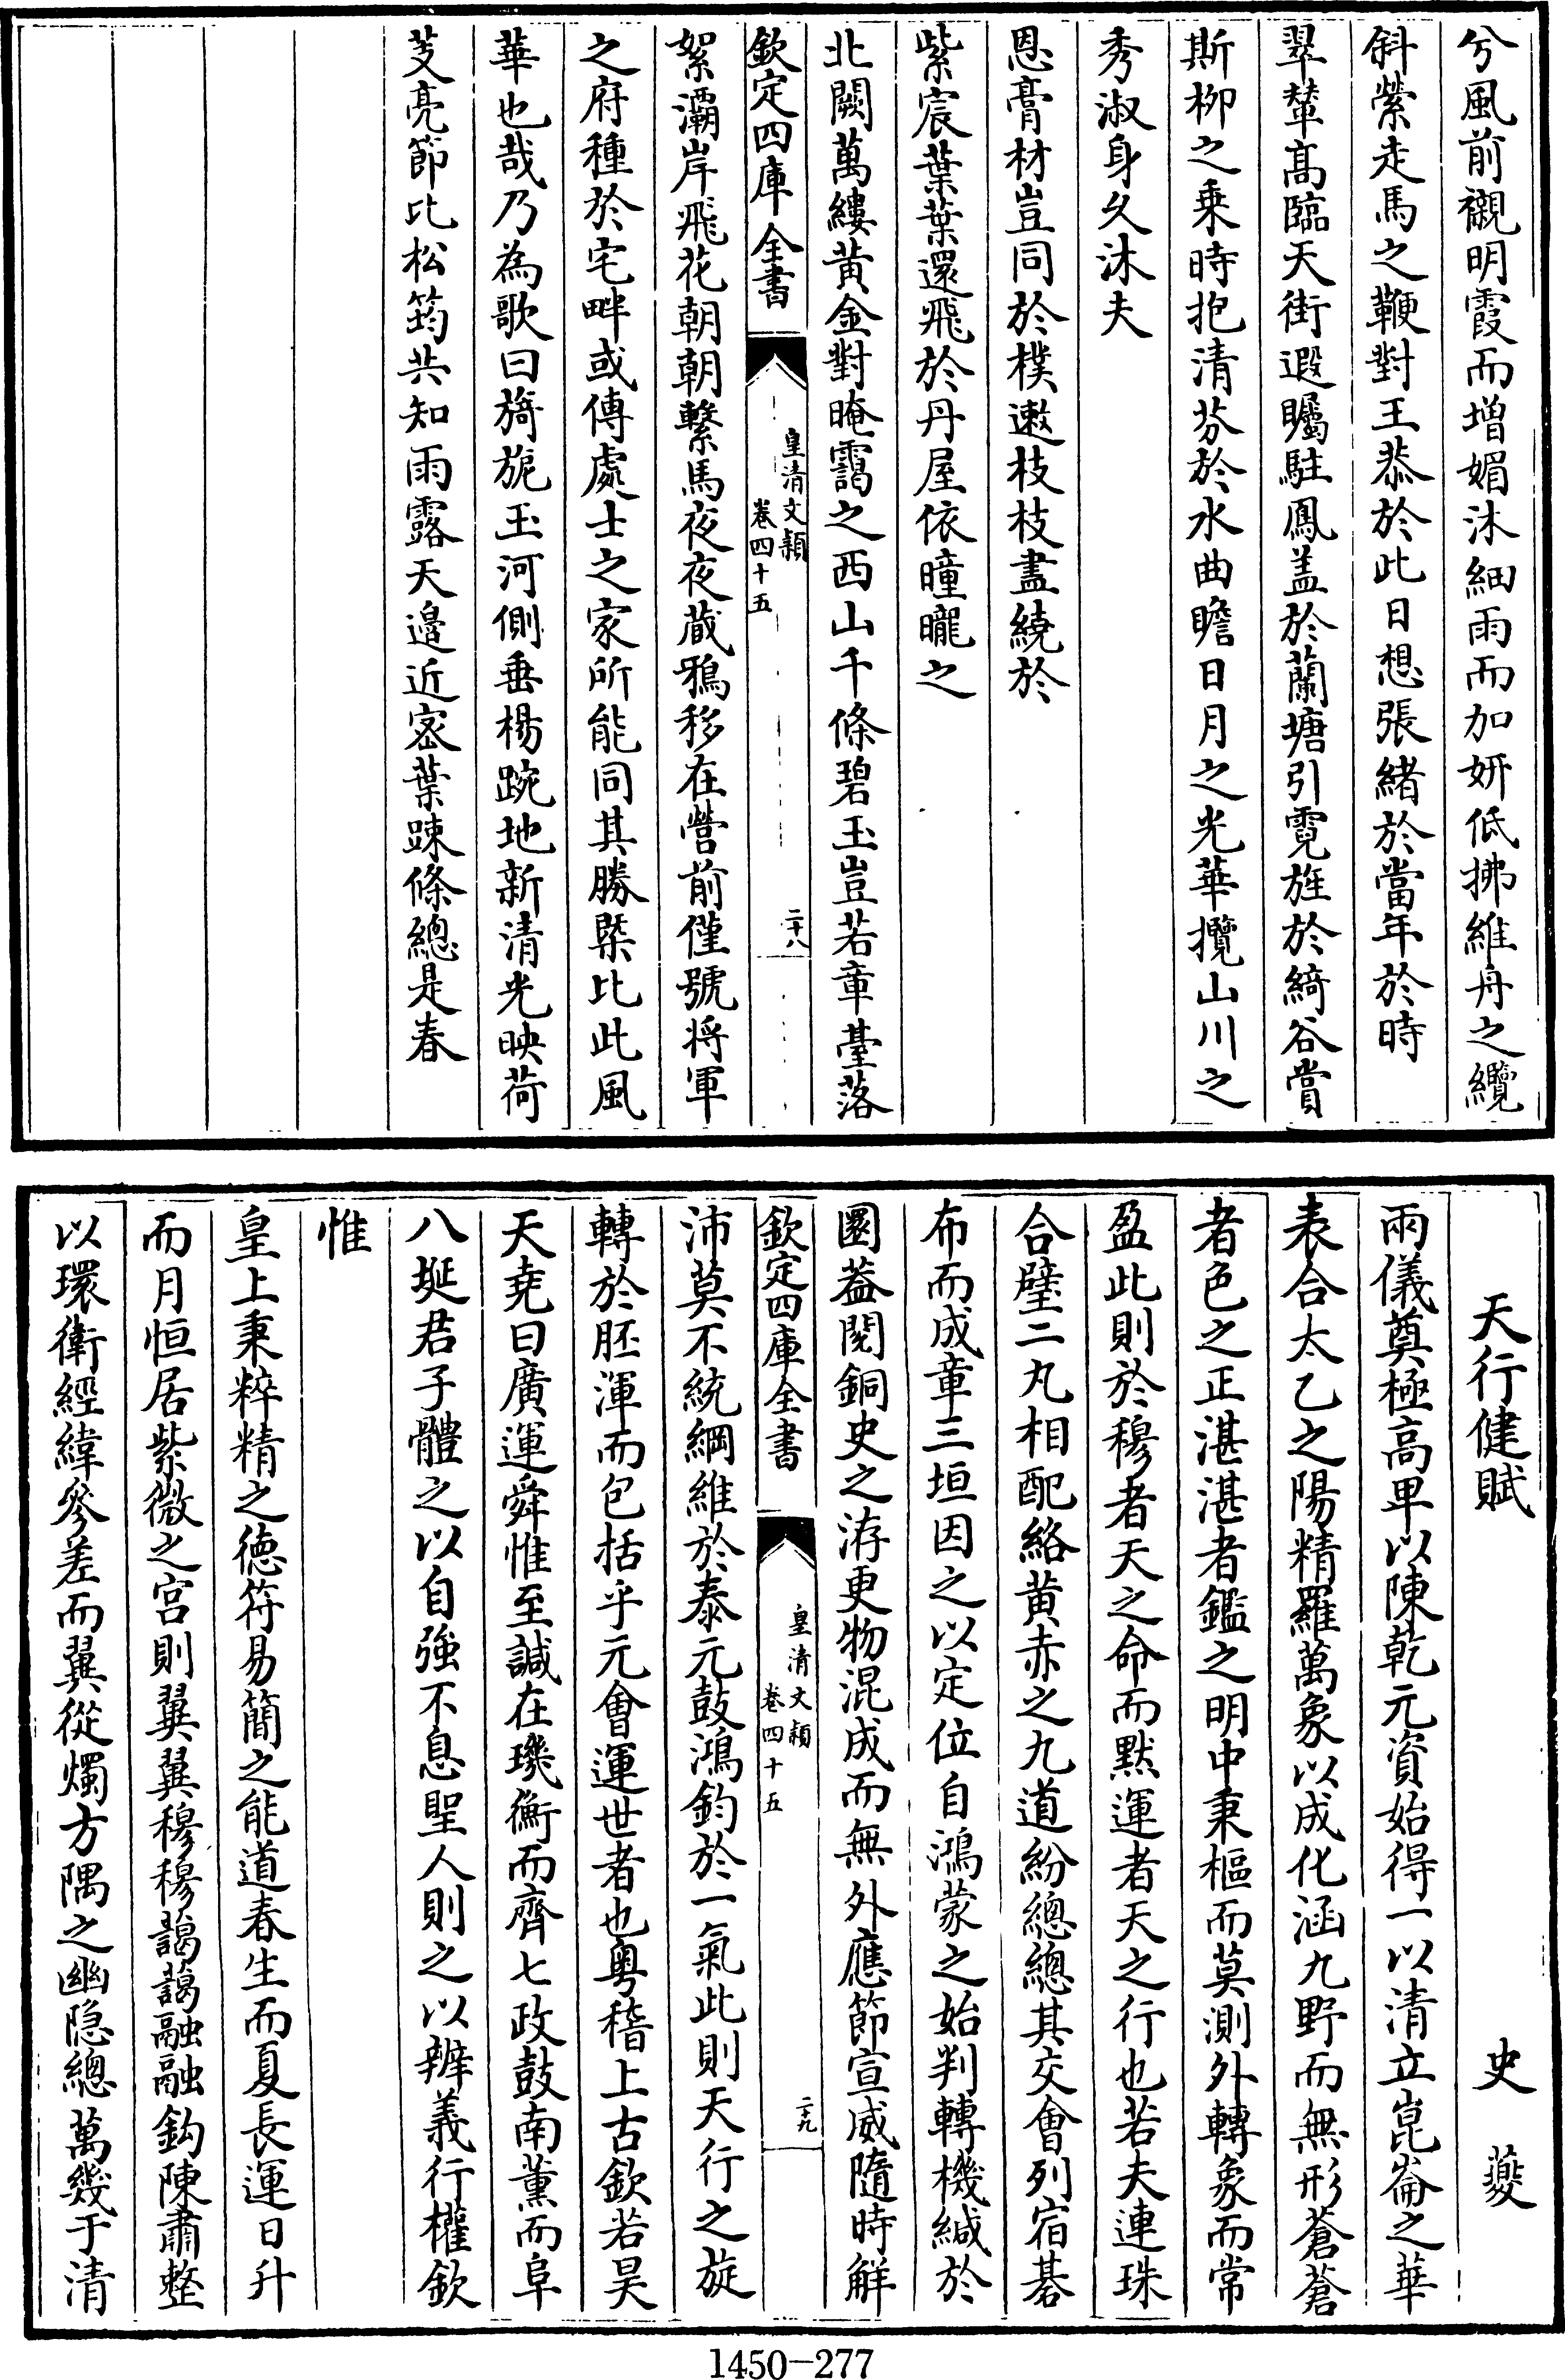 兮風前襯明霞而增媚沐細雨而加妍低拂維舟之纜
斜縈走馬之鞭對王恭於此日想張緒於當年於時
翠輦髙臨天街遐矚駐鳳盖於蘭塘引霓旌於綺谷賞
斯栁之乗時抱清芬於水曲瞻日月之光華攬山川之
秀淑身久沐夫
恩膏材豈同於樸遬枝枝盡繞於
紫宸葉葉還飛於丹屋依曈曨之
北闕萬縷黄金對晻靄之西山千條碧玉豈若章臺落
欽定四庫全書
皇清文穎
卷四十五
二十八
絮灞岸飛花朝朝繫馬夜夜蔵鴉移在營前僅號将軍
之府種於宅畔或傳處士之家所能同其勝槩比此風
華也哉乃為歌曰旖旎玉河側垂楊踠地新清光映荷
芰亮節比松筠共知雨露天邉近宻葉踈條總是春
天行健賦
史夔
兩儀奠極高卑以陳乾元資始得一以清立崑崙之華
表合太乙之陽精羅萬象以成化涵九野而無形蒼蒼
者色之正湛湛者鑑之明中秉樞而莫測外轉象而常
盈此則於穆者天之命而黙運者天之行也若夫連珠
合璧二丸相配絡黄赤之九道紛總總其交會列宿碁
布而成章三垣因之以定位自鴻蒙之始判轉機緘於
圜葢閱銅史之洊更物混成而無外應節宣威隨時觧
欽定四庫全書
皇清文穎
卷四十五
二十九
沛莫不統綱維於泰元鼓鴻鈞於一氣此則天行之旋
轉於胚渾而包括乎元會運世者也粤稽上古欽若昊
天堯曰廣運舜惟至諴在璣衡而齊七政鼓南薫而阜
八埏君子體之以自強不息聖人則之以辨義行權欽
惟
皇上秉粹精之徳符易簡之能道春生而夏長運日升
而月恒居紫微之宫則翼翼穆穆譪譪融融鈎陳肅整
以環衛經緯參差而翼從燭方隅之幽隠總萬幾于清
1450-277